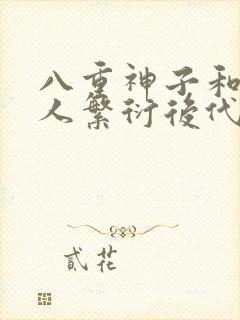 八重神子和
人繁衍後代
貳花